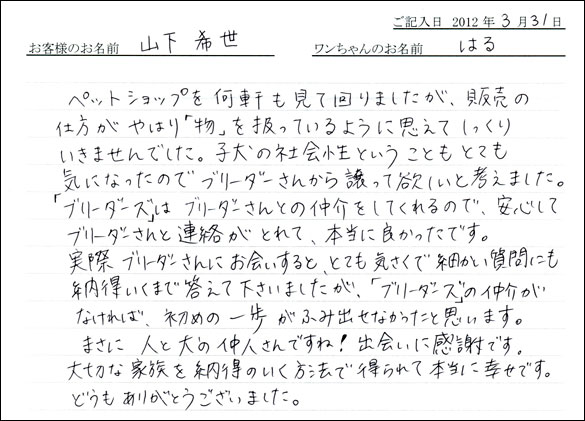 ご記入日 2012 年 3 月 31 日
お客様のお名前 山下 希世 ワンちゃんのお名前 はる
ペットショップを何軒も見て回りましたが、販売の
仕方がやはり「物」を扱っているように思えてしっくり
いきませんでした。子犬の社会性ということもとても
気になったのでブリーダーさんから譲って欲しいと考えました。
「ブリーダーズ」はブリーダーさんとの仲介をしてくれるので、安心して
ブリーダーさんと連絡がとれて、本当に良かったです。
実際ブリーダーさんにお会いすると、とても気さくで細かい質問にも
納得いくまで答えて下さいましたが、「ブリーダーズ」の仲介が
なければ、初めの一歩がふみ出せなかったと思います。
まさに人と犬の仲人さんですね!出会いに感謝です。
大切な家族を納得のいく方法で得られて本当に幸せです。
どうもありがとうございました。